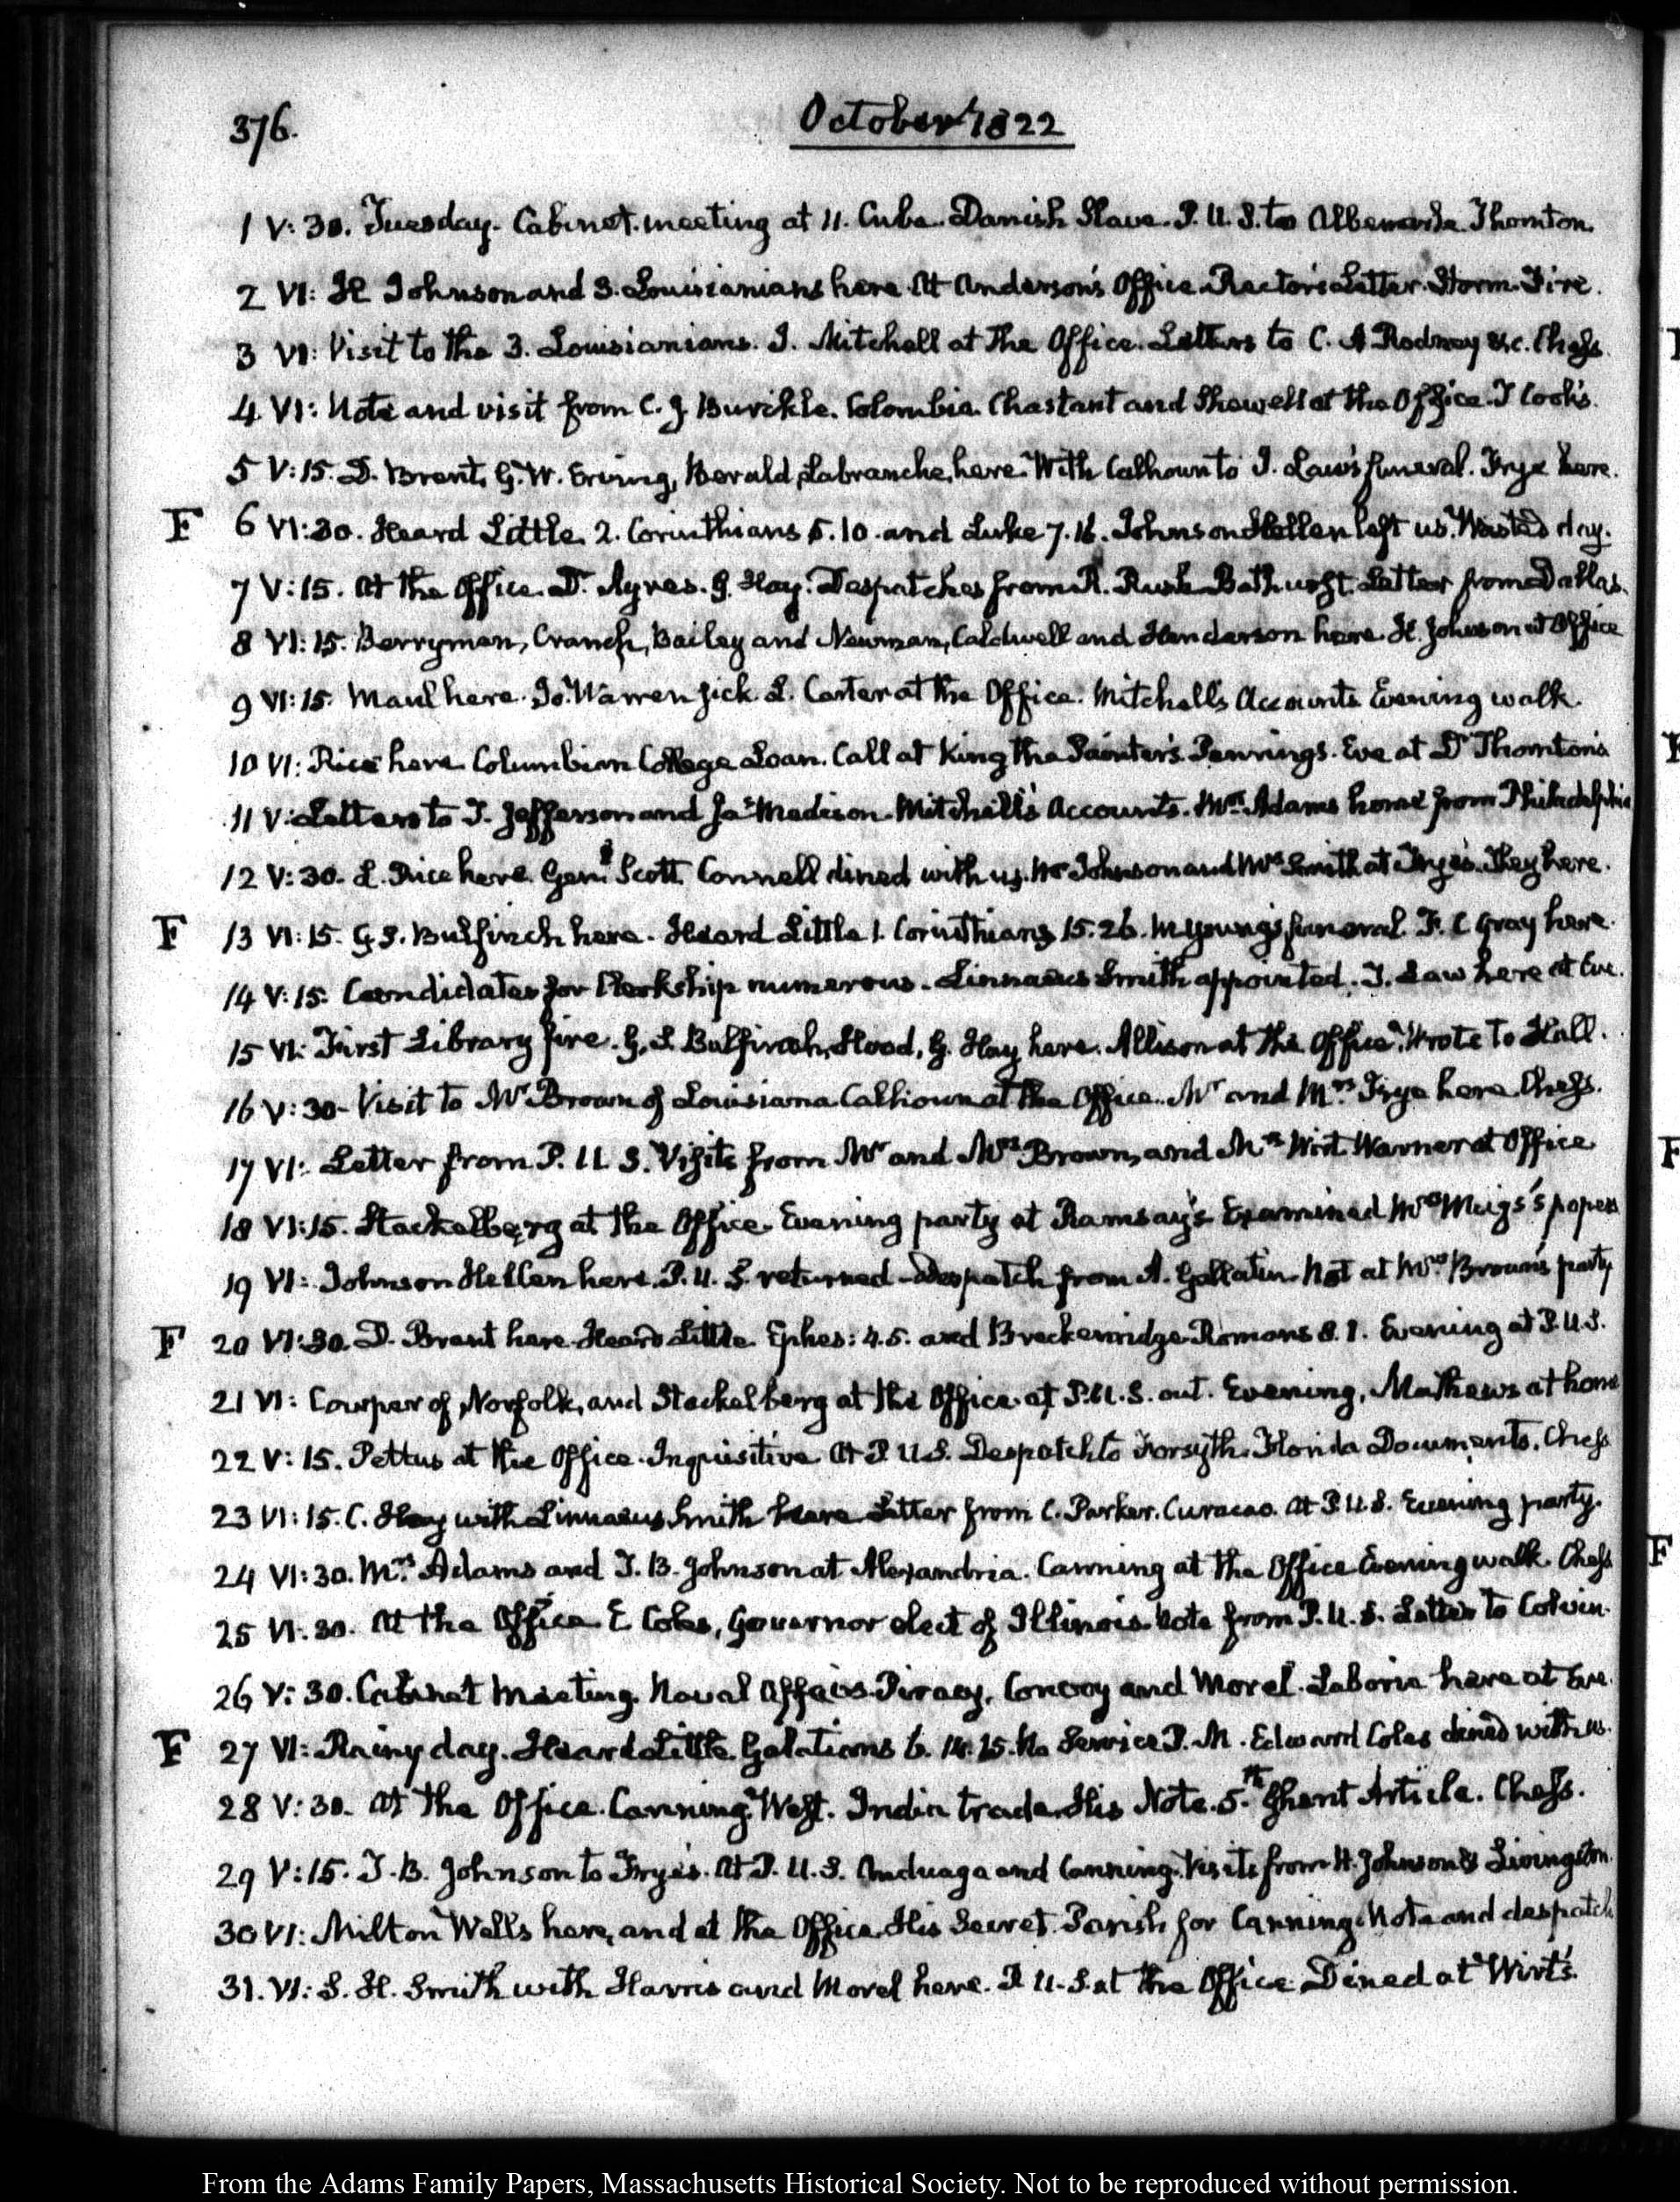 376.
October 1822
1 V: 30. Tuesday. Cabinet meeting at 11. Cuba. Danish Slave. P. U. S. to Albemarle. Thornton.
2 VI: H Johnson and 3. Louisianians here. At Anderson's Office. Rector's Letter. Storm. Fire.
3 VI: Visit to the 3. Louisianians. J. Mitchell at the Office. Letters to C. A Rodney &c. Chess.
4 VI: Note and visit from C. J. Burckle. Colombia. Chastant and Showell at the Office. T Cook's.
5 V: 15. D. Brent, G. W. Erving, Labranche, here. With Calhoun to J. Law's funeral. Frye here.
F 6 VI: 30. Heard Little. 2. Corinthians 5. 10. and Luke 7. 16. Johnson Hellen left us. Wasted day.
7 V: 15. At the Office. Dr. Ayres. G. Hay. Despatches from R. Rush. Bathurst. Letter from Dallas.
8 VI: 15. Berryman, Cranch, Bailey and Newman, Caldwell and Henderson here. H. Johnson at Office
9 VI: 15. Maul here. Warren sick. L. Carter at the Office. Mitchell's Accounts. Evening walk.
10 VI: Rice here. Columbian College Loan. Call at King the Painter's. Pennings. Eve at Dr Thornton's
11 V: Letters to T. Jefferson and Jas Madison. Mitchell's Accounts. Mrs. Adams home from Philadelphia
12 V: 30. L. Rice here. Genl Scott. Connell dined with us. Mr Johnson and Mrs Smith at Frye's. They here.
F 13 VI: 15. G. S. Bulfinch here. Heard Little 1. Corinthians 15. 26. M Young's funeral. F. C Gray here.
14 V: 15. Candidates for Clerkship numerous. Linnaeus Smith appointed. T. Law here at Eve.
15 VI: First Library fire. G. S. Bulfinch, Hood, G. Hay here. Allison at the Office. Wrote to Hall.
16 V: 30 Visit to Mr Brown of Louisiana. Calhoun at the Office. Mr and Mrs Frye here. Chess.
17 VI: Letter from P. U. S. Visits from Mr and Mrs Brown, and Mrs Wirt. Warner at Office
18 VI: 15. Stackelberg at the Office. Evening party at Ramsay's. Examined Mrs Meigs's papers
19 VI: Johnson Hellen here. P. U. S. returned. Despatch from A. Gallatin. Not at Mrs Brown's party
F 20 VI: 30. D. Brent here. Heard Little. Ephes: 4. 5. and Breckenridge Romans 8. 1. Evening at P. U. S.
21 VI: Cowper of Norfolk, and Stackelberg at the Office. at P. U. S. out. Evening, Mathews at home
22 V: 15. Pettus at the Office. Inquisitive. At P. U. S. Despatch to Forsyth. Florida Documents. Chess
23 VI: 15. C. Hay with Linnaeus Smith here. Letter from C. Parker. Curacao. At P. U. S. Evening party.
24 VI: 30. Mrs. Adams and T. B. Johnson at Alexandria. Canning at the Office. Evening walk. Chess
25 VI. 30. At the Office. E. Coles, Governor elect of Illinois. Note from P. U. S. Letter to Colvin.
26 V: 30. Cabinet Meeting. Naval Affairs. Piracy, Convoy and Morel. Laborie here at Eve.
F 27 VI: Rainy day. Heard Little. Galatians 6. 14. 15. No Service P. M. Edward Coles dined with us.
28 V: 30. At the Office. Canning. West. India trade. His Note. 5.th Ghent Article. Chess.
29 V: 15. T. B. Johnson to Frye's. At P. U. S. Anduaga and Canning. Visits from H. Johnson & Livingston.
30 VI: Milton Wells here, and at the Office. His Secret. Parish for Canning. Note and despatch
31. VI: S. H. Smith with Harris and Morel here. P. U. S. at the Office. Dined at Wirt's.
From the Adams Family Papers, Massachusetts Historical Society. Not to be reproduced without permission.